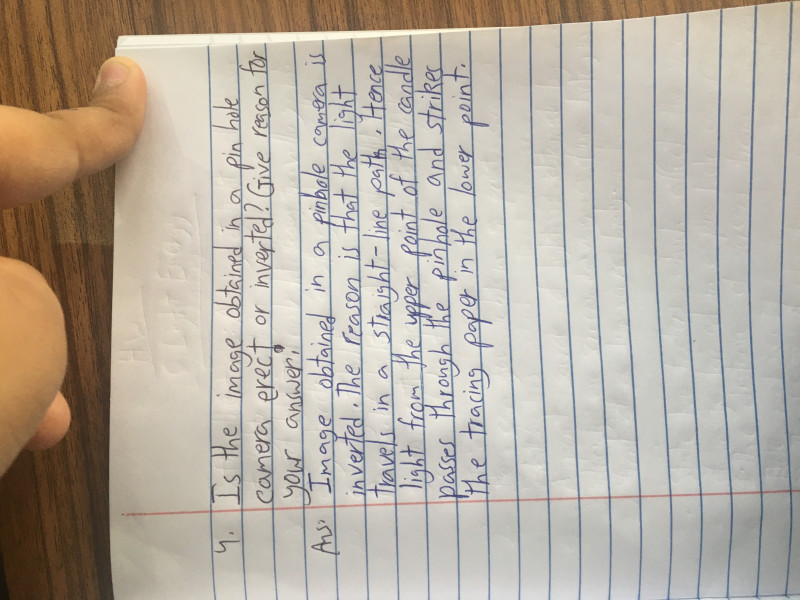 4. Is the image obtained in a pin hole
camera erect or inverted? Give reason for
your answer.
Ans. Image obtained in a pinhole camera is
inverted. The reason is that the light
travels in a straight-line path. Hence
light from the upper point of the candle
passes through the pinhole and strikes
the tracing paper in the lower point.